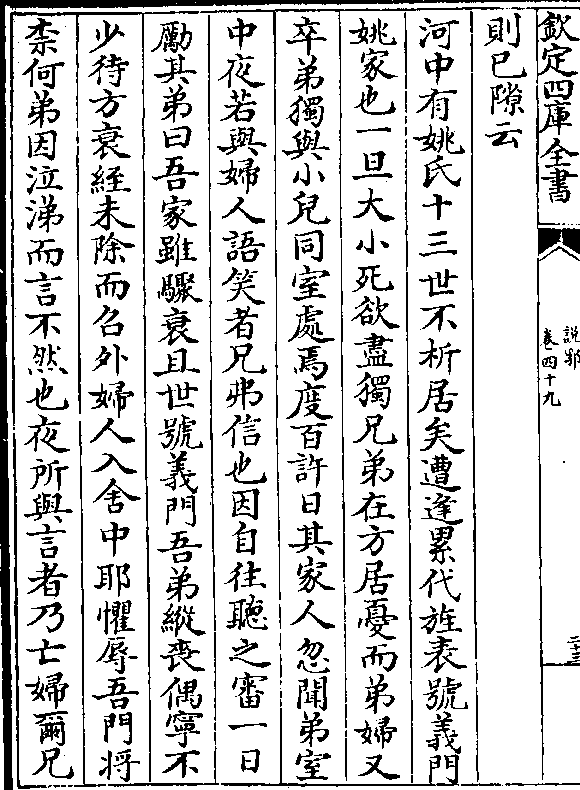 欽定四庫全書
說郛
卷四十九
二十三
則已隙云
河中有姚氏十三世不析居矣遭逢累代旌表號義門
姚家也一旦大小死欲盡獨兄弟在方居憂而弟婦又
卒弟獨與小兒同室處焉度百許日其家人忽聞弟室
中夜若與婦人語笑者兄弗信也因自往聽之審一日
勵其弟曰吾家雖驟衰且世號義門吾弟縱喪偶寧不
少待方衰絰未除而召外婦人入舍中耶懼辱吾門將
柰何弟因泣涕而言不然也夜所與言者乃亡婦爾兄